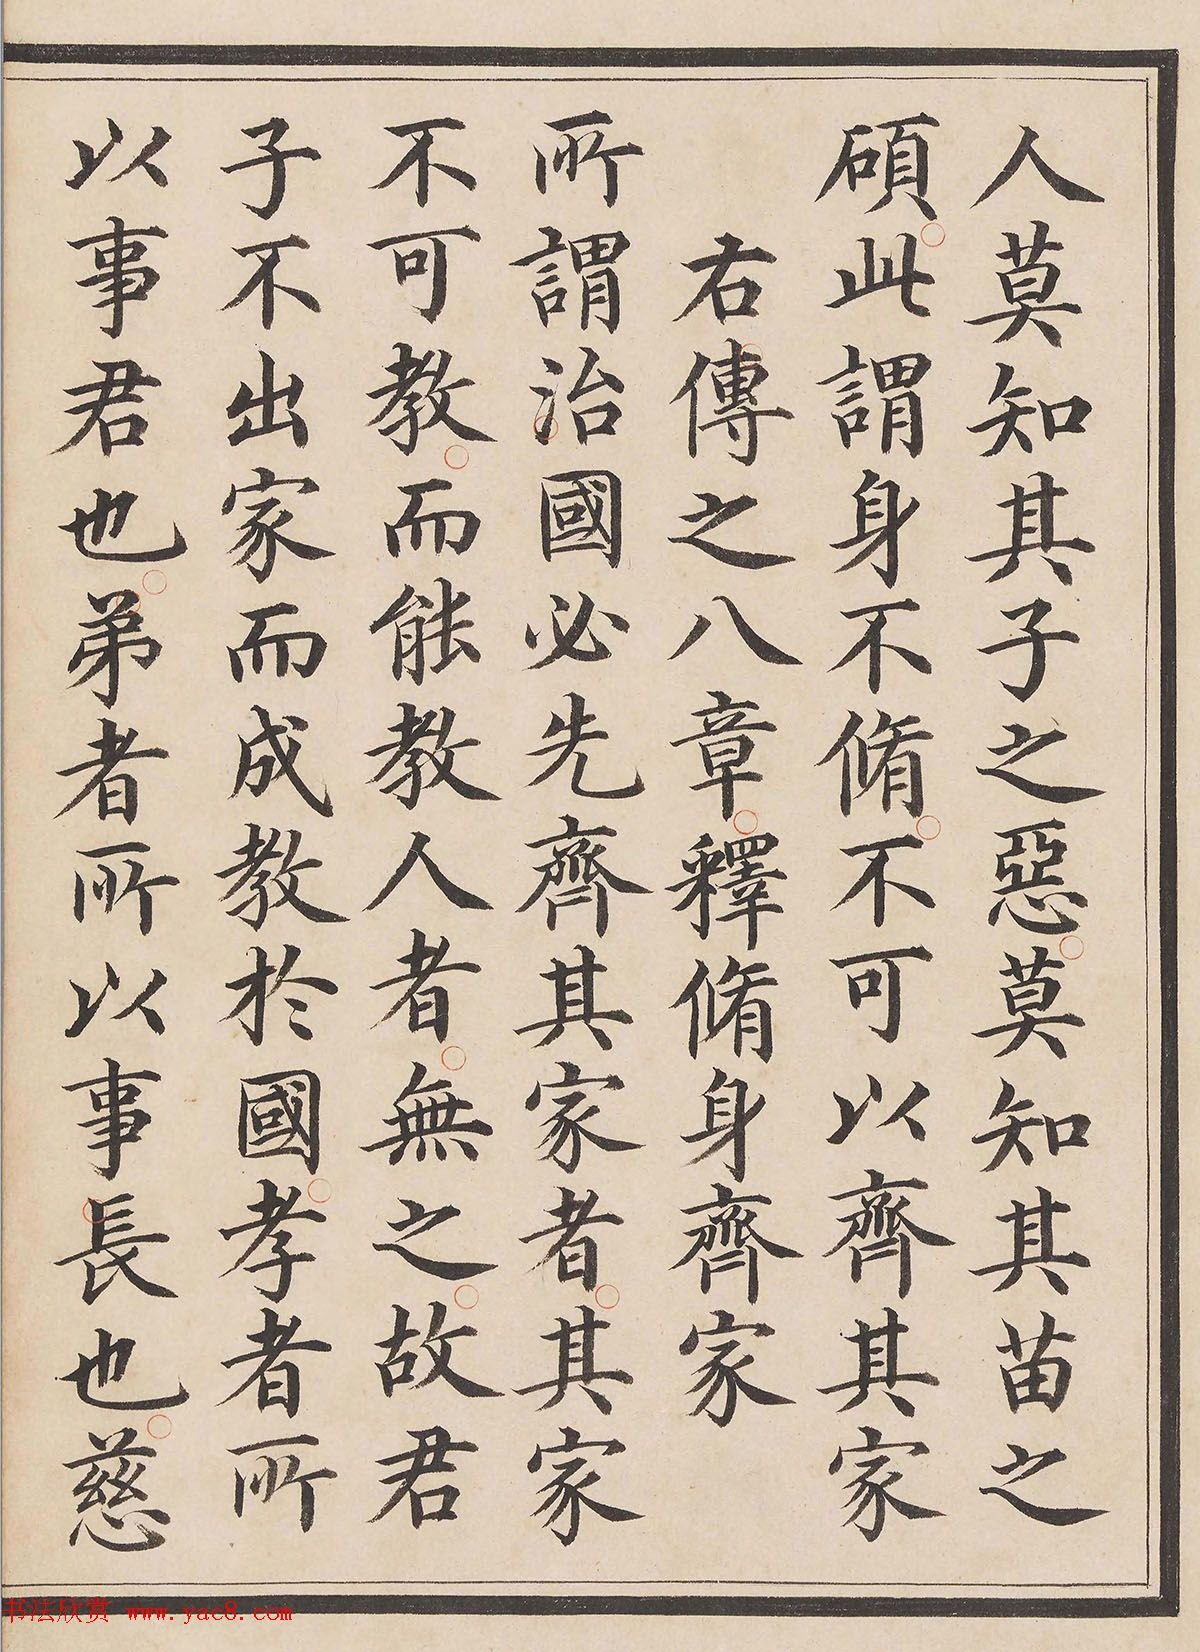 人莫知其子之惡莫知其苗之
碩此謂身不脩不可以齊其家
右傳之八章釋脩身齊家
所謂治國必先齊其家者其家
不可教而能教人者無之故君
子不出家而成教於國孝者所
以事君也弟者所以事長也慈
书法欣赏 www.yac8.com